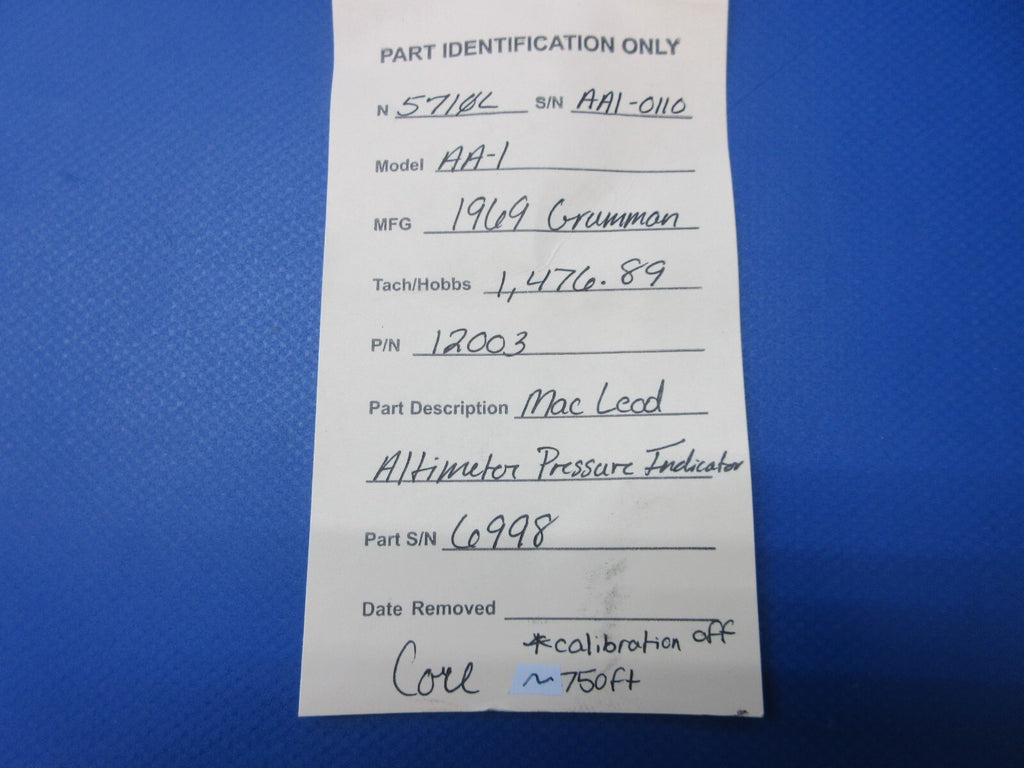 PART IDENTIFICATION ONLY
N 5710L S/N AA1-0110
Model AA-1
MFG 1969 Grumman
Tach/Hobbs 1,476.89
P/N 12003
Part Description Mac Leod
Altimeter Pressure Indicator
Part S/N 6998
Date Removed
*calibration off
Core ~750ft